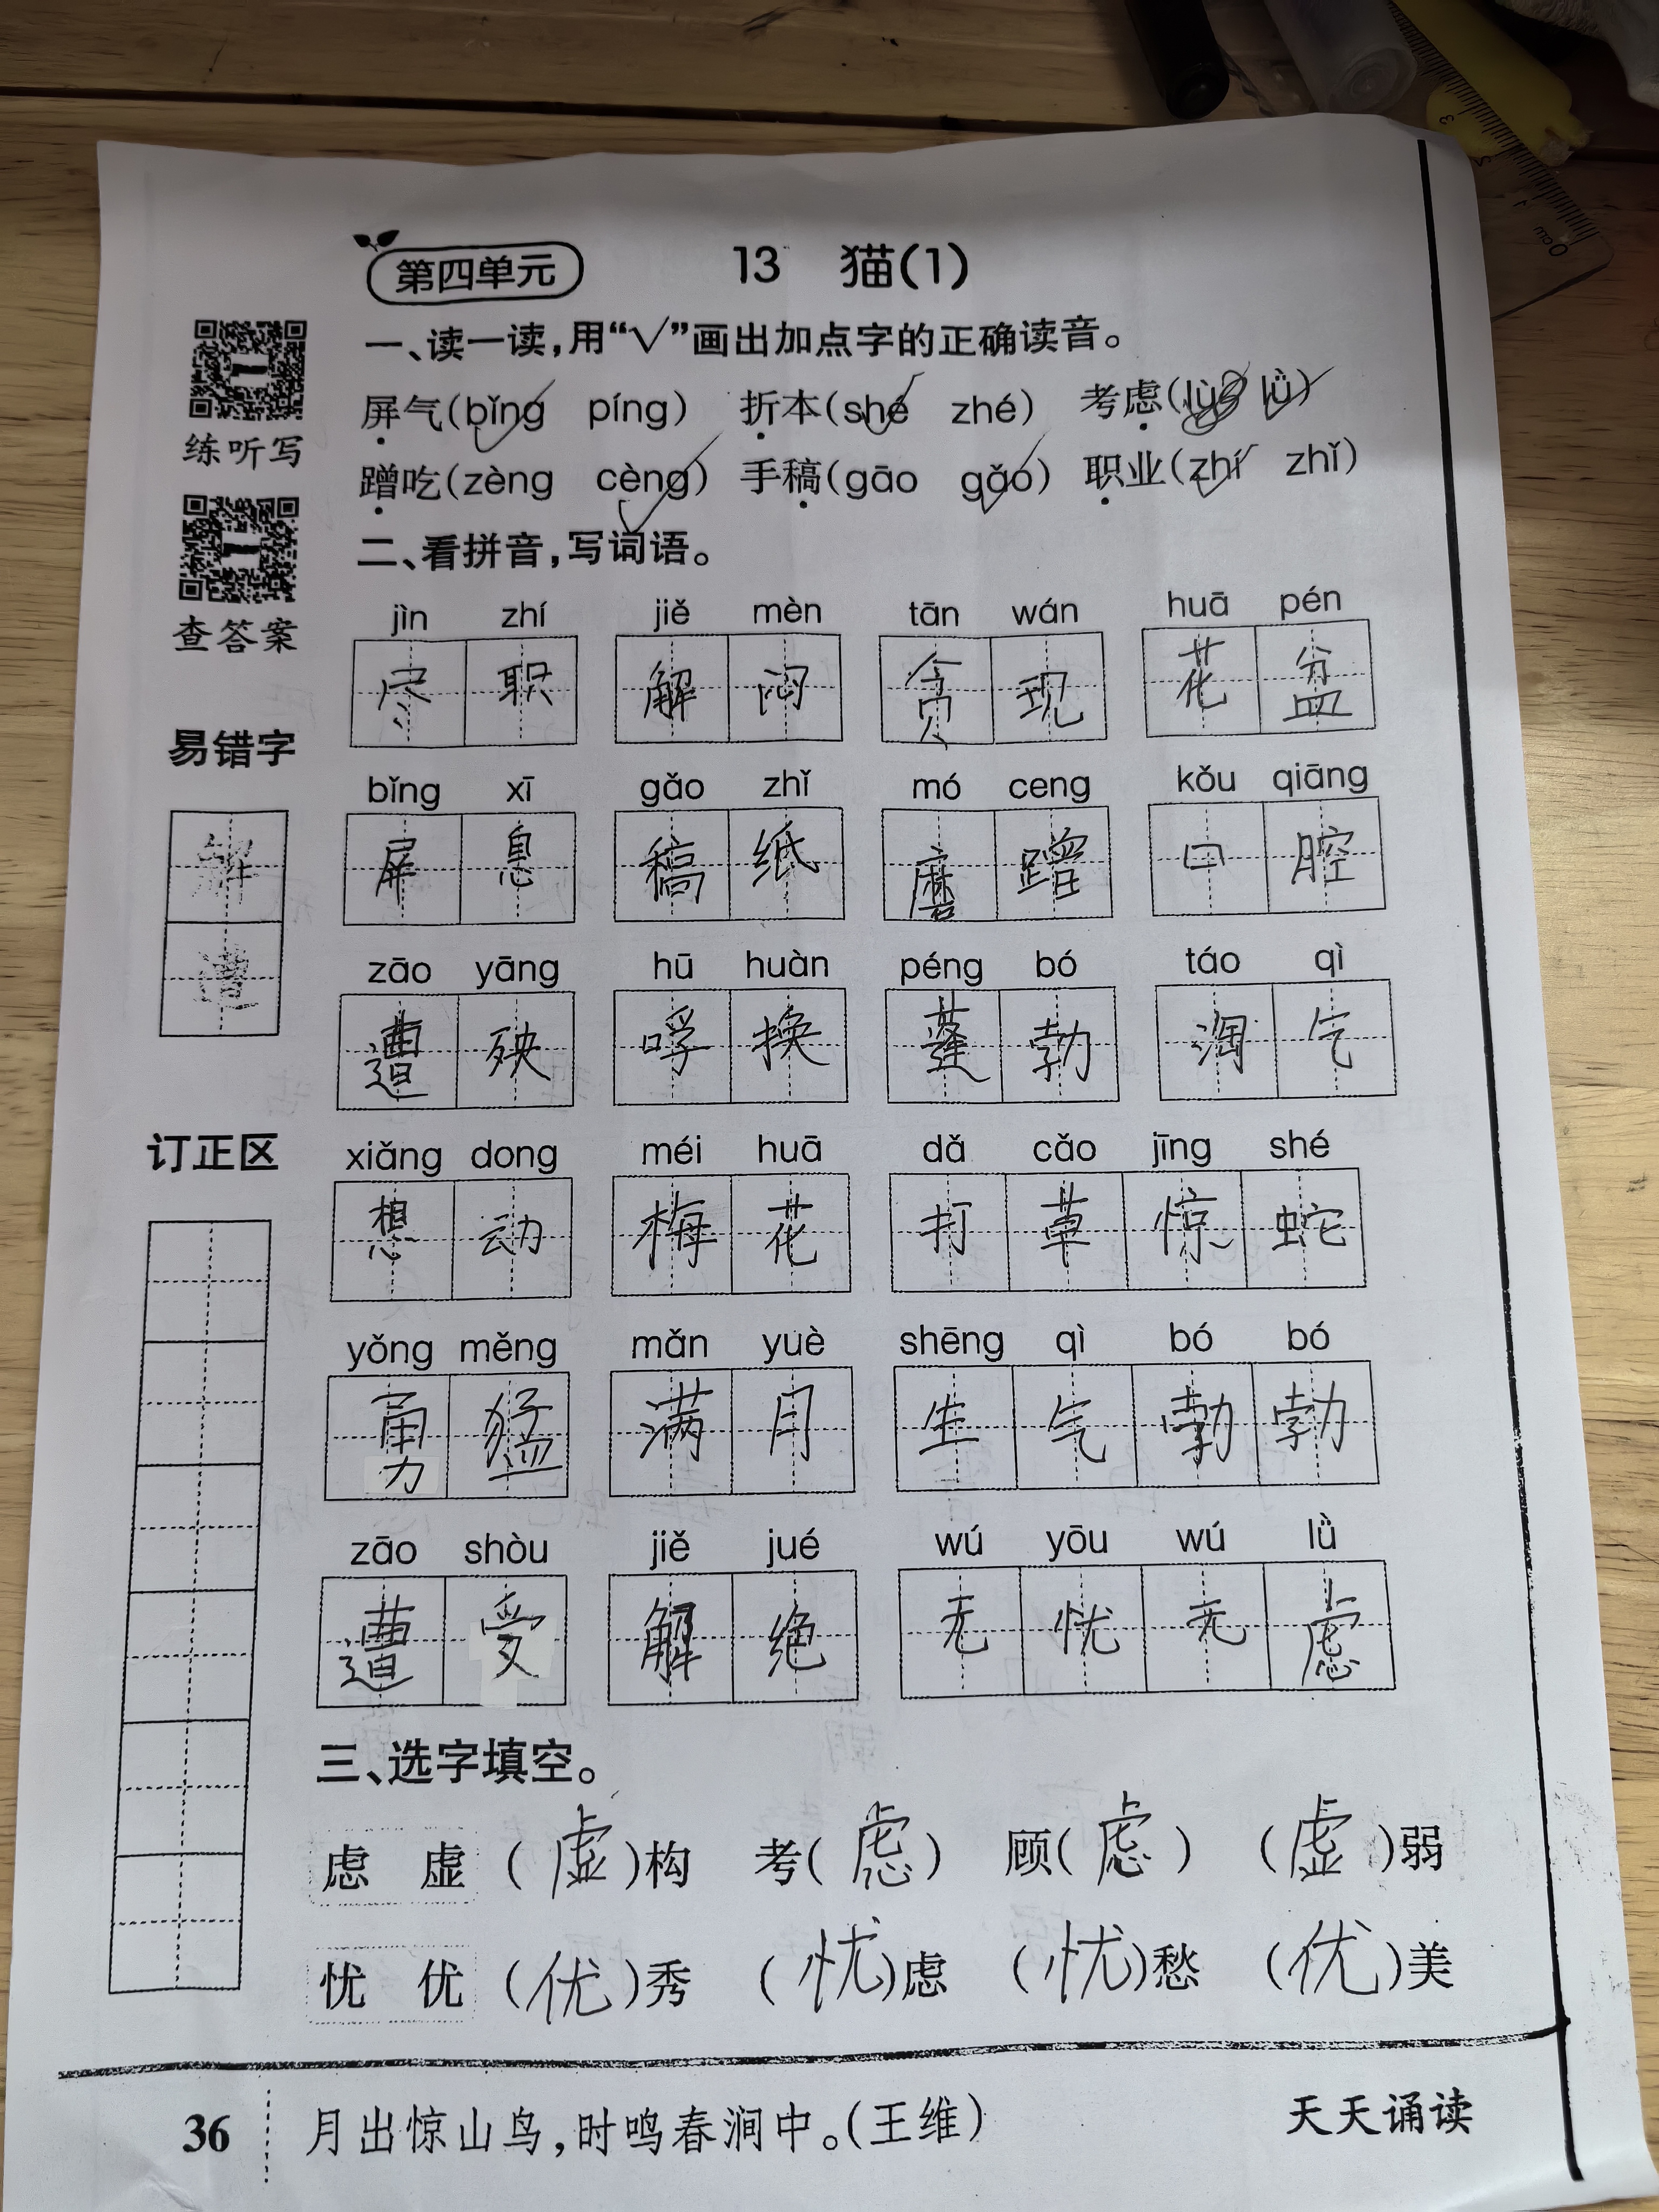 第四单元 13 猫(1)
一、读一读,用“√”画出加点字的正确读音。
屏气(bǐng píng) 折本(shé zhé) 考虑(lǜ)
蹭吃(zèng cèng) 手稿(gāo gǎo) 职业(zhí zhǐ)
练听写
二、看拼音,写词语。
查答案
jìn zhí jiě mèn tān wán huā pén
尽 职 解 闷 贪 现 花 盆
易错字
解
遭
bǐng xī gǎo zhǐ mó ceng kǒu qiāng
屏 息 稿 纸 磨 蹭 口 腔
zāo yāng hū huàn péng bó táo qì
遭 殃 呼 换 蓬 勃 淘 气
订正区
xiǎng dong méi huā dǎ cǎo jīng shé
想 动 梅 花 打 草 惊 蛇
yǒng měng mǎn yuè shēng qì bó bó
勇 猛 满 月 生 气 勃 勃
zāo shòu jiě jué wú yōu wú lǜ
遭 受 解 绝 无 忧 无 虑
三、选字填空。
虑 虚 (虚)构 考(虑) 顾(虑) (虚)弱
忧 优 (优)秀 (忧)虑 (忧)愁 (优)美
36 月出惊山鸟,时鸣春涧中。(王维) 天天诵读